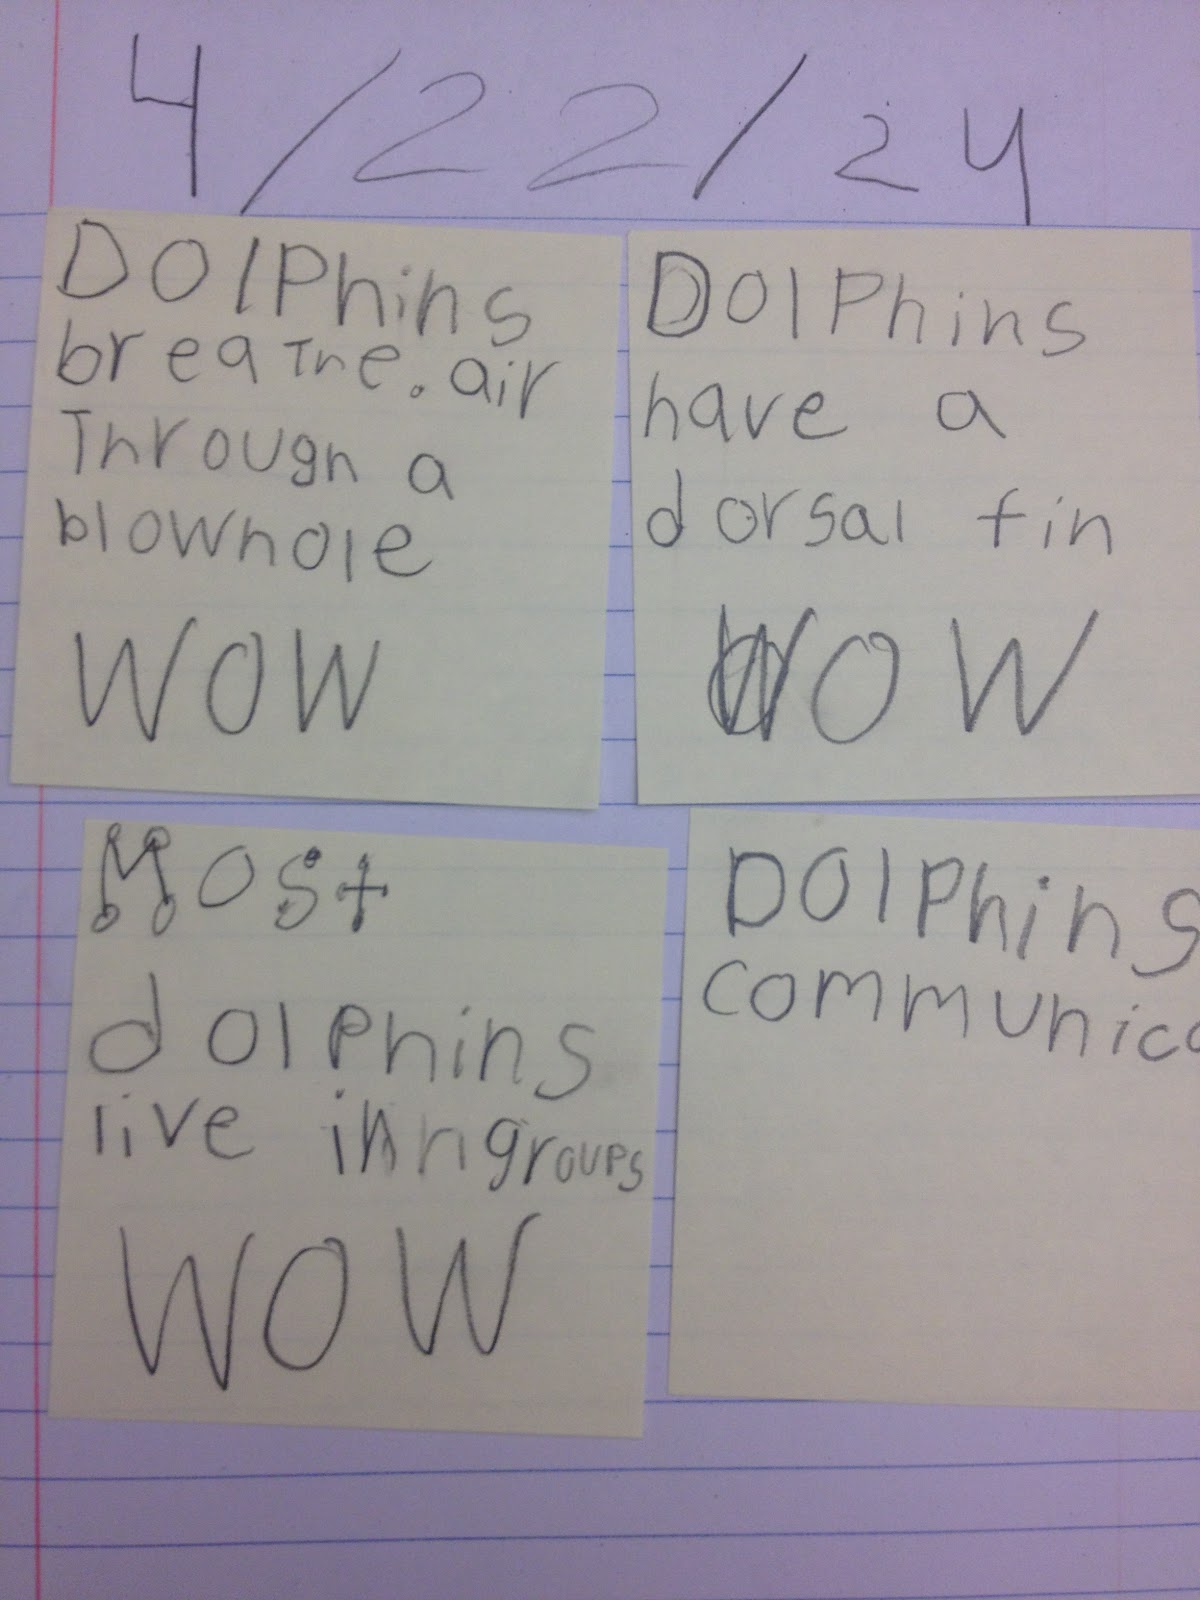 4/22/24
DOlPhins
breathe. air
Through a
blowhole
WOW
DOlPhins
have a
dorsal fin
WOW
Most
dolphins
live inn groups
WOW
DOlPhins
communica